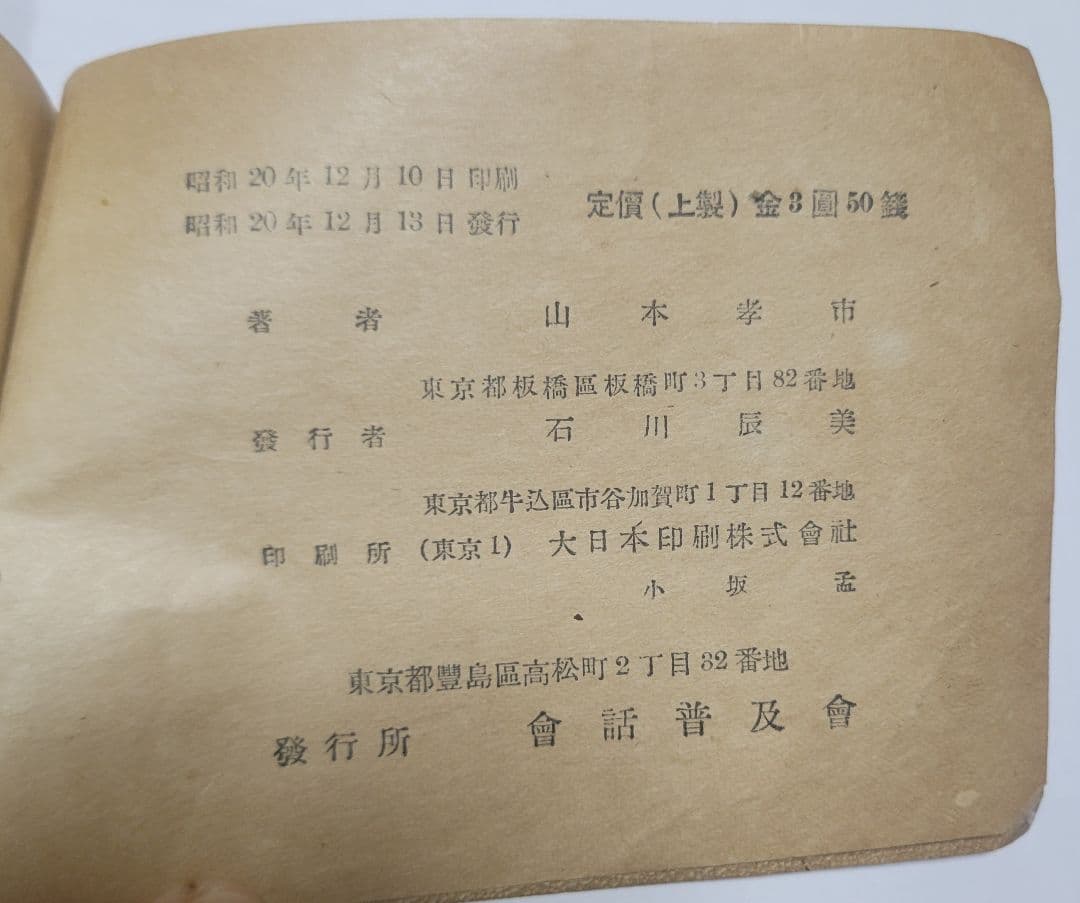 昭和20年12月10日印刷
昭和20年12月13日發行
定價(上製)金3圓50錢
著者 山本孝市
東京都板橋區板橋町3丁目82番地
發行者 石川辰美
東京都牛込區市谷加賀町1丁目12番地
印刷所 (東京1) 大日本印刷株式會社
小坂孟
東京都豐島區高松町2丁目32番地
發行所 會話普及會